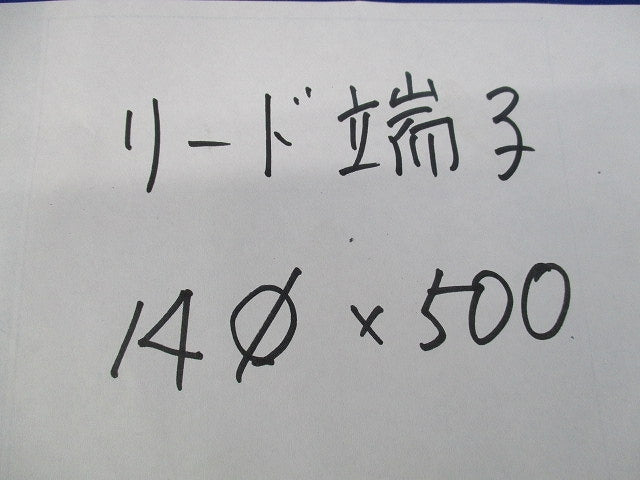 リード端子
14φ×500